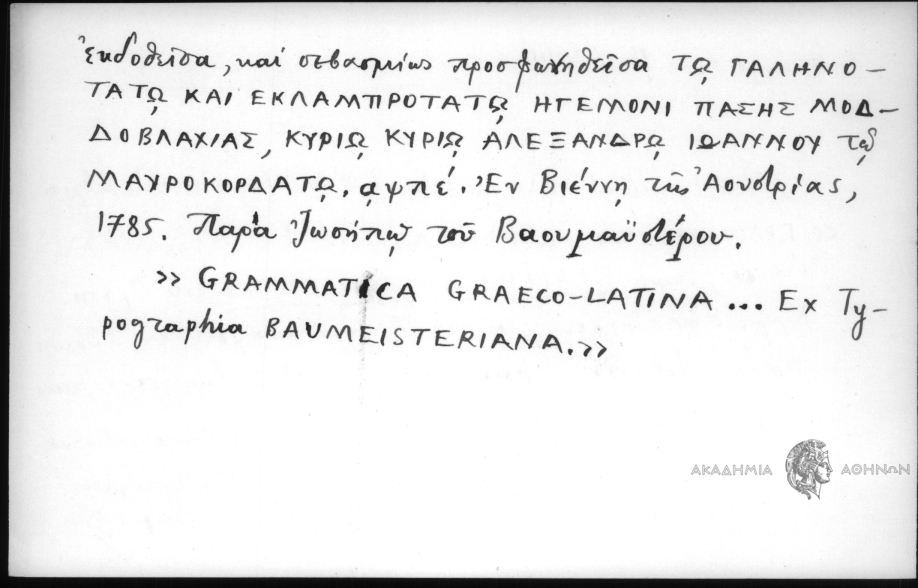 ἐκδοθεῖσα, καί σεβασμίως προσφωνηθεῖσα Τῼ ΓΑΛΗΝΟ-
ΤΑΤῼ ΚΑΙ ΕΚΛΑΜΠΡΟΤΑΤῼ ΗΓΕΜΟΝΙ ΠΑΣΗΣ ΜΟΛ-
ΔΟΒΛΑΧΙΑΣ, ΚΥΡΙῼ ΚΥΡΙῼ ΑΛΕΞΑΝΔΡῼ ΙΩΑΝΝΟΥ τῷ
ΜΑΥΡΟΚΟΡΔΑΤῼ. αψπέ. Ἐν Βιέννῃ τῆς Ἀουστρίας,
1785. Παρά Ἰωσήπῳ τοῦ Βαουμαϋστέρου.
» GRAMMATICA GRAECO-LATINA ... Ex Ty-
pographia BAUMEISTERIANA.»
ΑΚΑΔΗΜΙΑ ΑΘΗΝΩΝ